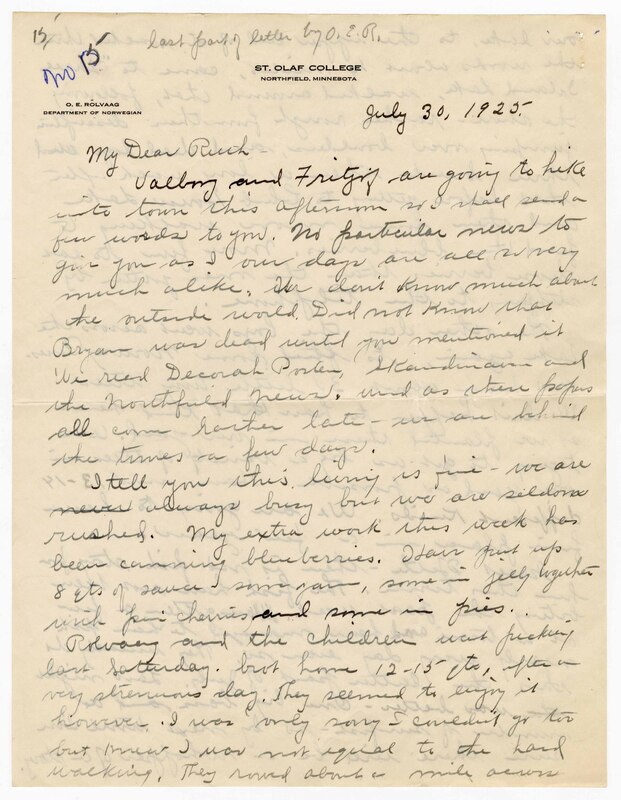 15/
last part of letter by O. E. R.
No 15
ST. OLAF COLLEGE
NORTHFIELD, MINNESOTA
O. E. RÖLVAAG
DEPARTMENT OF NORWEGIAN
July 30, 1925.
My Dear Ruth
Valborg and Fritjof are going to hike
into town this afternoon so I shall send a
few words to you. No particular news to
give you as I our days are all so very
much alike. We don't know much about
the outside world. Did not know that
Bryan was dead until you mentioned it
We read Decorah Posten, Skandinaven and
the Northfield News, and as these papers
all come rather late - we are behind
the times a few days.
I tell you this living is fine - we are
never always busy but we are seldom
rushed. My extra work this week has
been canning blueberries. Have put up
8 qts of sauce, some jam, some in jelly together
with pin cherries and some in pies.
Rolvaag and the children went picking
last Saturday. brot home 12-15 qts, after a
very strenuous day. They seemed to enjoy it
however. I was only sorry I couldn't go too
but knew I was not equal to the hard
walking. They rowed about a mile across